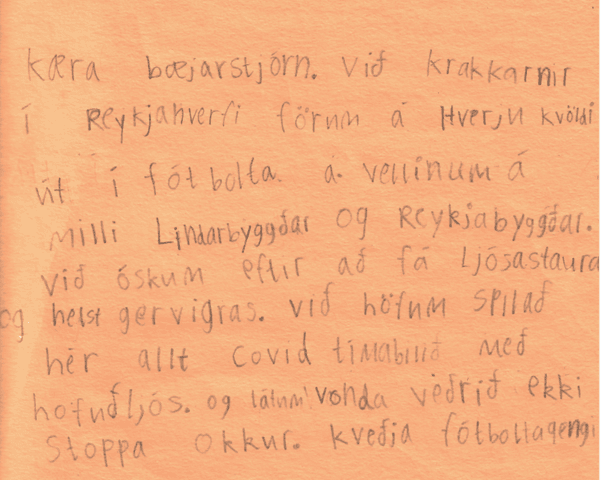 Kæra bæjarstjórn. Við krakkarnir
í Reykjahverfi förum á Hverju kvöldi
út í fótbolta. á vellinum á
milli Lindarbyggðar og Reykjabyggðar.
við óskum eftir að fá Ljósastaura
og helst gervigras. við höfum spilað
hér allt Covid tímabilið með
hofuðljós. og látum vonda veðrið ekki
Stoppa okkur. kveðja fótboltagengi